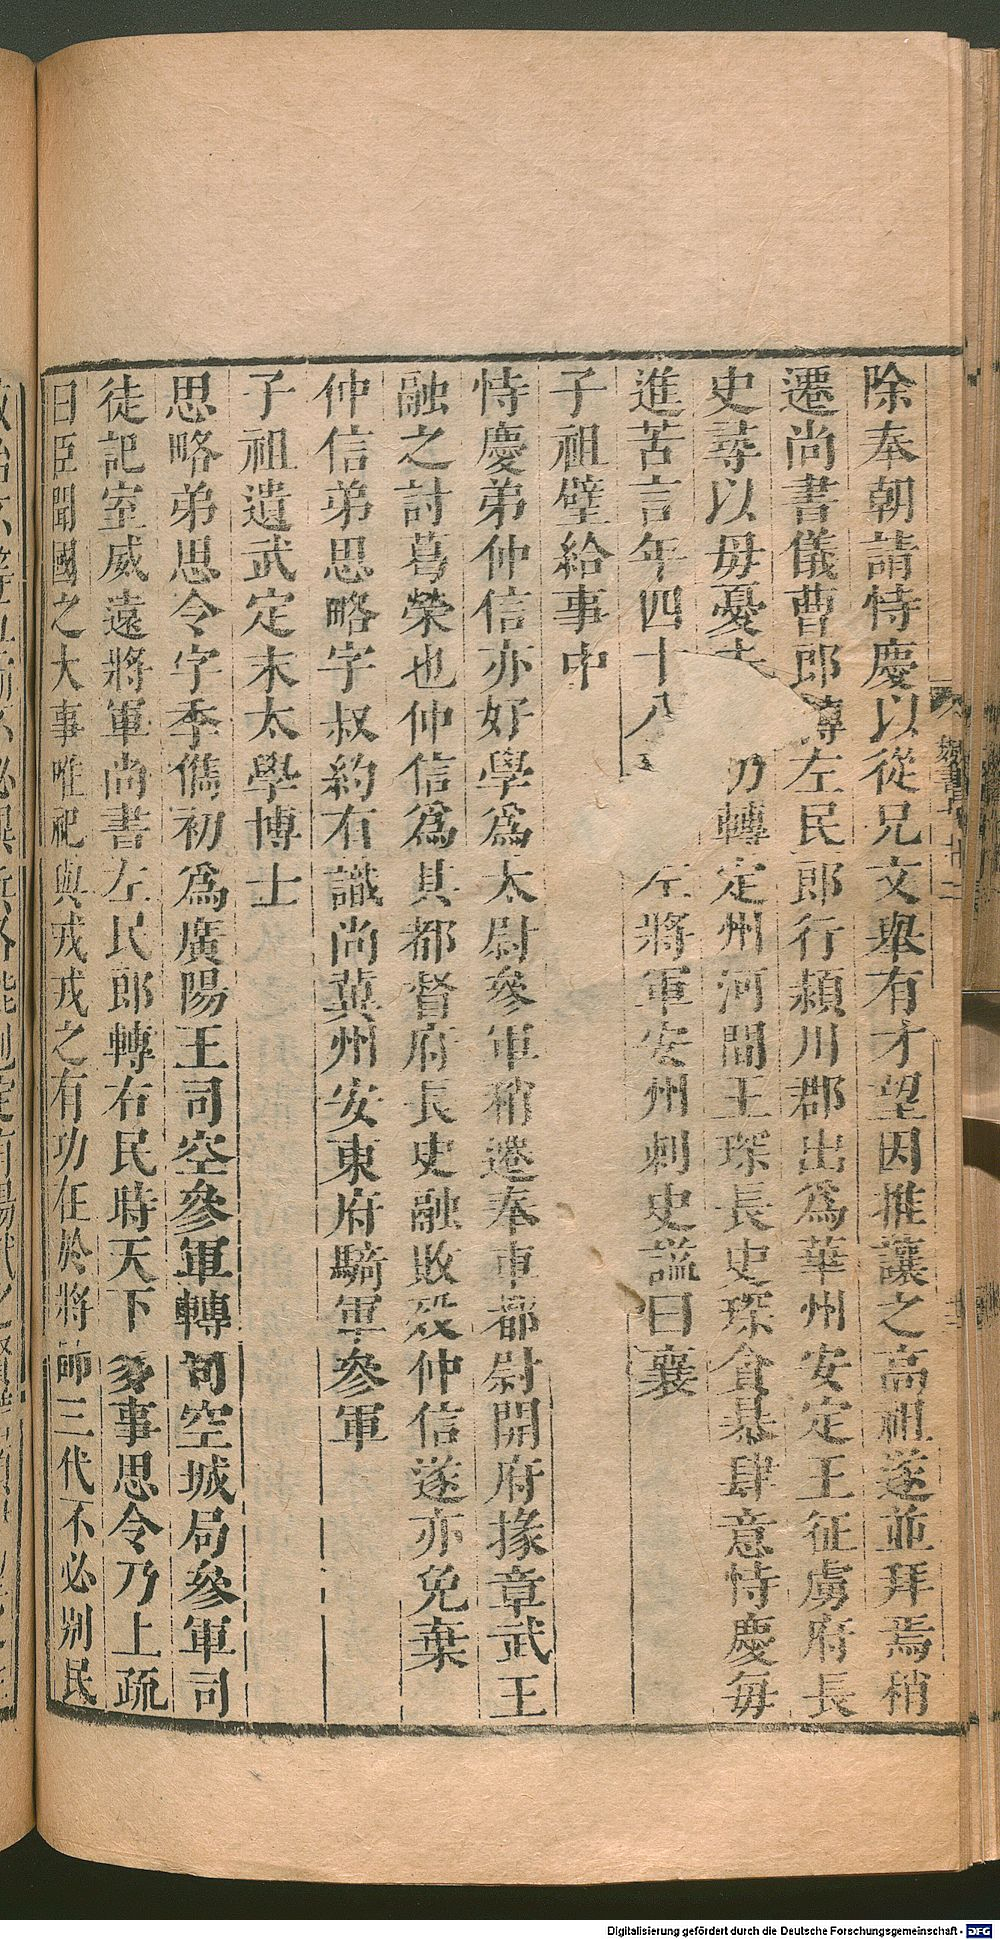 除奉朝請恃慶以從兄文舉有才望因推讓之高祖遂並拜焉稍
遷尚書儀曹郎轉左民郎行潁川郡出爲華州安定王征虜府長
史尋以毋憂去乃轉定州河間王琛長史琛貪暴肆意恃慶每
進苦言年四十八左將軍安州刺史謚曰襄
子祖壁給事中
恃慶弟仲信亦好學爲太尉參軍稍遷奉車都尉開府掾章武王
融之討葛榮也仲信爲其都督府長史融敗歿仲信遂亦免棄
仲信弟思略字叔約有識尚冀州安東府騎軍參軍
子祖遺武定末太學博士
思略弟思令字季儁初爲廣陽王司空參軍轉司空城局參軍司
徒記室威遠將軍尚書左民郎轉右民時天下多事思令乃上疏
曰臣聞國之大事唯祀與戎戎之有功在於將師三代不必别民
Digitalisierung gefördert durch die Deutsche Forschungsgemeinschaft - DFG